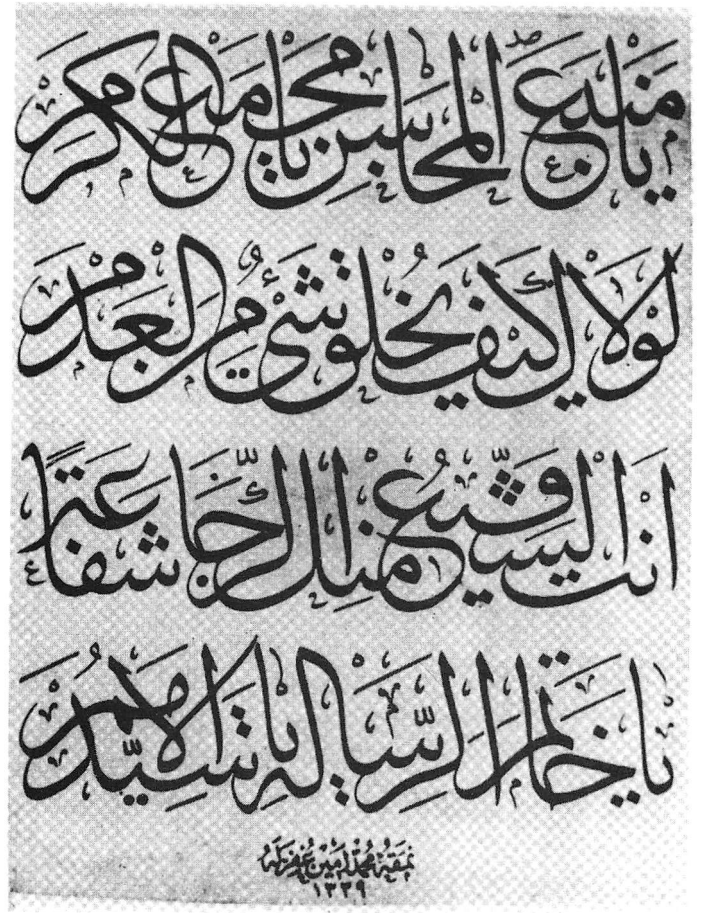 يَا مَنْبَعَ الْمَحَاسِنِ يَا مَجْمَعَ الْكَرَمِ
لَوْلَاكَ كَيْفَ يُخْلَقُ شَيْءٌ مِنَ الْعَدَمِ
أَنْتَ الشَّفِيعُ مِنْكَ الرَّجَا شَفَاعَةً
يَا خَاتَمَ الرِّسَالَةِ يَا سَيِّدَ الْأُمَمِ
نمقه محمد امين غفر له
١٣٣٩